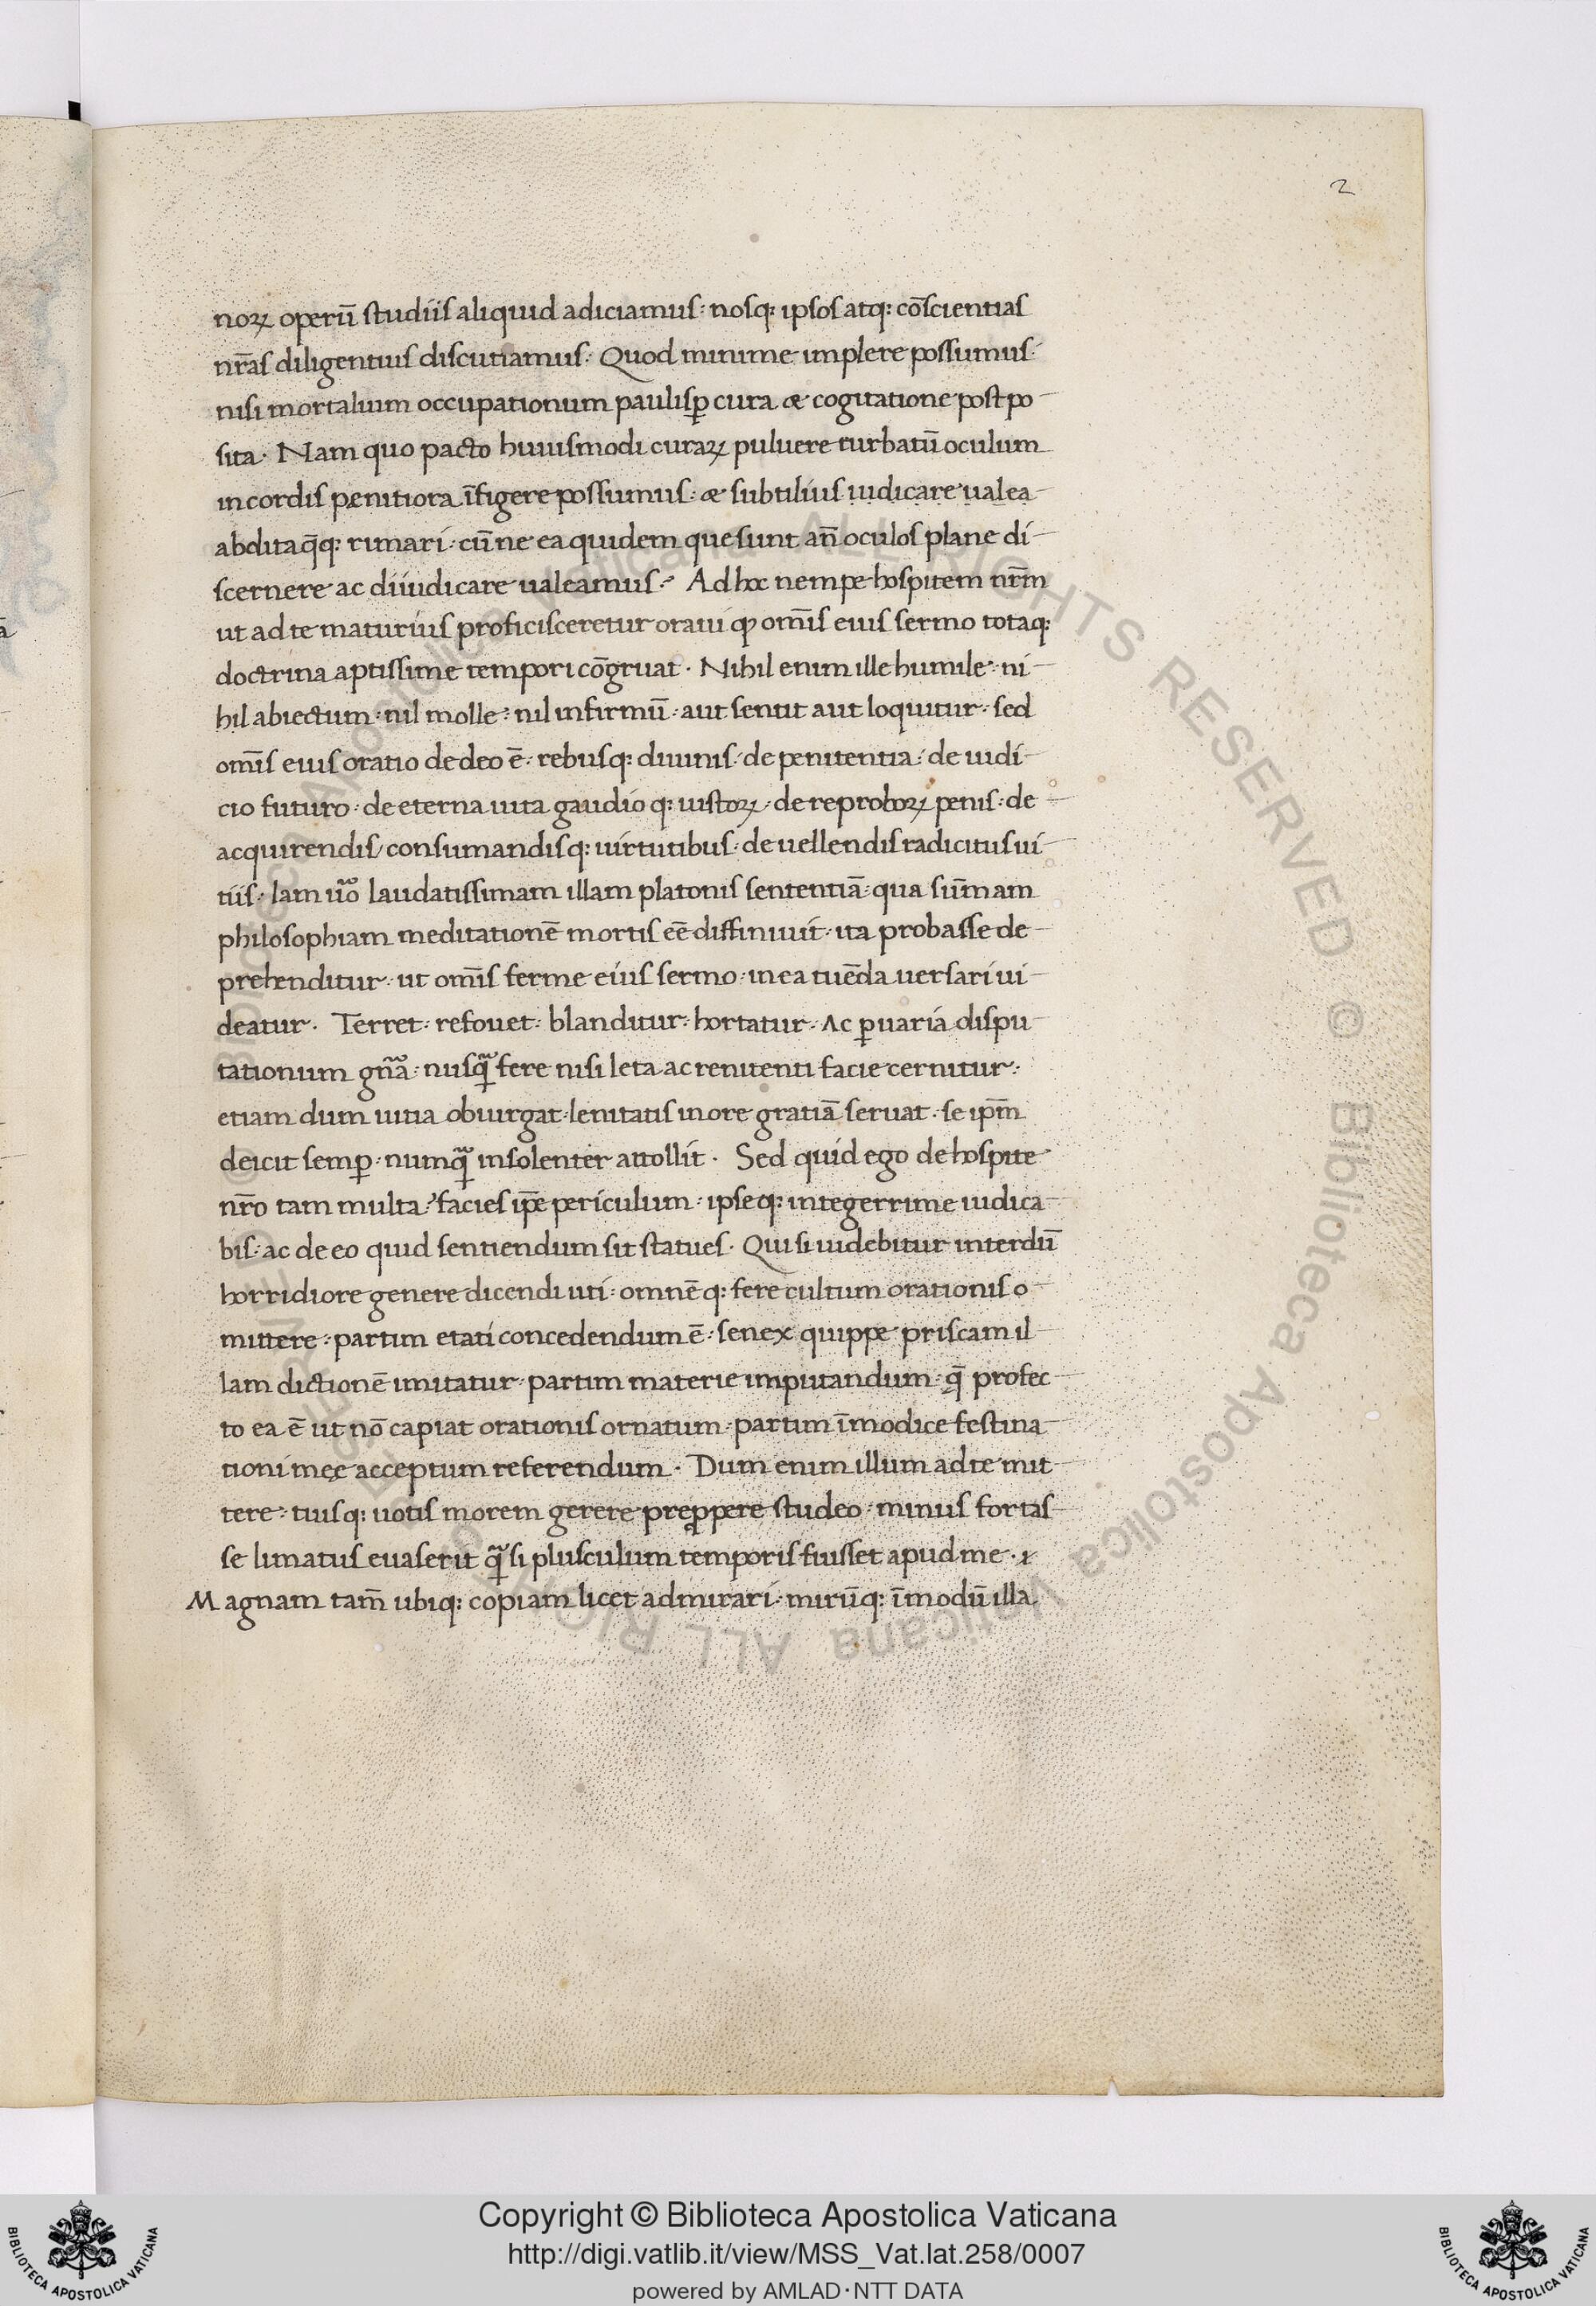 2
noꝝ operū studiis aliquid adiciamus: nosq: ipsos atq: cōscientias
nr̄as diligentius discutiamus: Quod minime implere possumus:
nisi mortalium occupationum paulisꝑ cura & cogitatione postpo-
sita. Nam quo pacto huiusmodi curaꝝ puluere turbatū oculum
in cordis penitiora īfigere possumus: & subtilius iudicare ualea-
abditaq̄q: rimari: cūne ea quidem que sunt an̄ oculos plane di-
scernere ac diiudicare ualeamus: Ad hoc nempe hospitem nr̄m
ut ad te maturius proficisceretur oraui ꝙ om̄is eius sermo totaq:
doctrina aptissime tempori cōgruat. Nihil enim ille humile: ni-
hil abiectum: nil molle: nil infirmū: aut sentit aut loquitur: sed
om̄is eius oratio de deo ē: rebusq: diuinis: de penitentia: de iudi-
cio futuro: de eterna uita gaudio q: iustoꝝ: de reproboꝝ penis: de
acquirendis/ consumandisq: uirtutibus: de uellendis radicitus ui-
tiis: Iam ūo laudatissimam illam platonis sententiā: qua sūmam
philosophiam meditationē mortis eē diffiniuit: ita probasse de-
prehenditur: ut om̄is ferme eius sermo: in ea tuēda uersari ui-
deatur. Terret: refouet: blanditur: hortatur: Ac ꝑ uaria dispu-
tationum gn̄a: nusq̄ fere nisi leta ac renitenti facie cernitur:
etiam dum uitia obiurgat: lenitatis in ore gratiā seruat: se ip̄m
deicit semꝑ: numq̄ insolenter attollit. Sed quid ego de hospite
nr̄o tam multa? facies ip̄e periculum: ipseq: integerrime iudica-
bis: ac de eo quid sentiendum sit statues. Qui si uidebitur interdū
horridiore genere dicendi uti: omnē q: fere cultum orationis o-
mittere: partim etati concedendum ē: senex quippe priscam il-
lam dictionē imitatur: partim materie imputandum: q̄ profec-
to ea ē ut nō capiat orationis ornatum: partim īmodice festina-
tioni meę acceptum referendum. Dum enim illum ad te mit-
tere: tuisq: uotis morem gerere preꝓpere studeo: minus fortas-
se limatus euaserit q̄ si plusculum temporis fuisset apud me.
Magnam tam̄ ubiq: copiam licet admirari: mirūq: īmodū illa
Copyright © Biblioteca Apostolica Vaticana
http://digi.vatlib.it/view/MSS_Vat.lat.258/0007
powered by AMLAD·NTT DATA
BIBLIOTECA APOSTOLICA VATICANA
BIBLIOTECA APOSTOLICA VATICANA